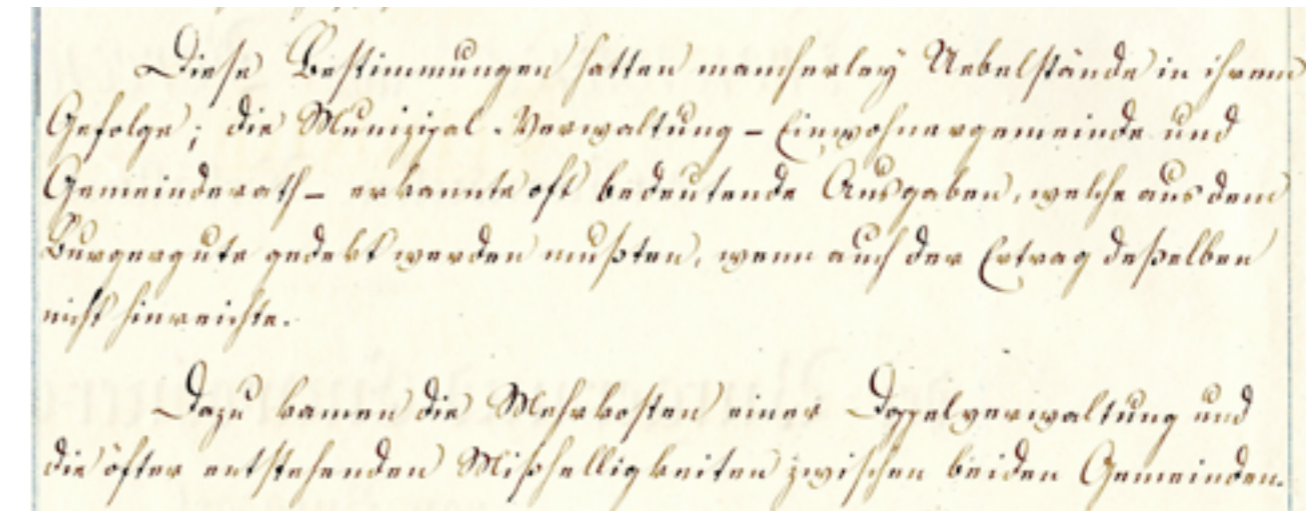 Diese Bestimmungen hatten mancherley Uebelstände in ihrem
Gefolge; die Munizipal-Verwaltung – Einwohnergemeinde und
Gemeinderath – erkannte oft bedeutende Ausgaben, welche aus dem
Burgergute gedekt werden mußten, wenn auch der Ertrag deßelben
nicht hinreichte.
Dazu kamen die Mehrkosten einer Doppelverwaltung und
die öfter entstehenden Mißhelligkeiten zwischen beiden Gemeinden.